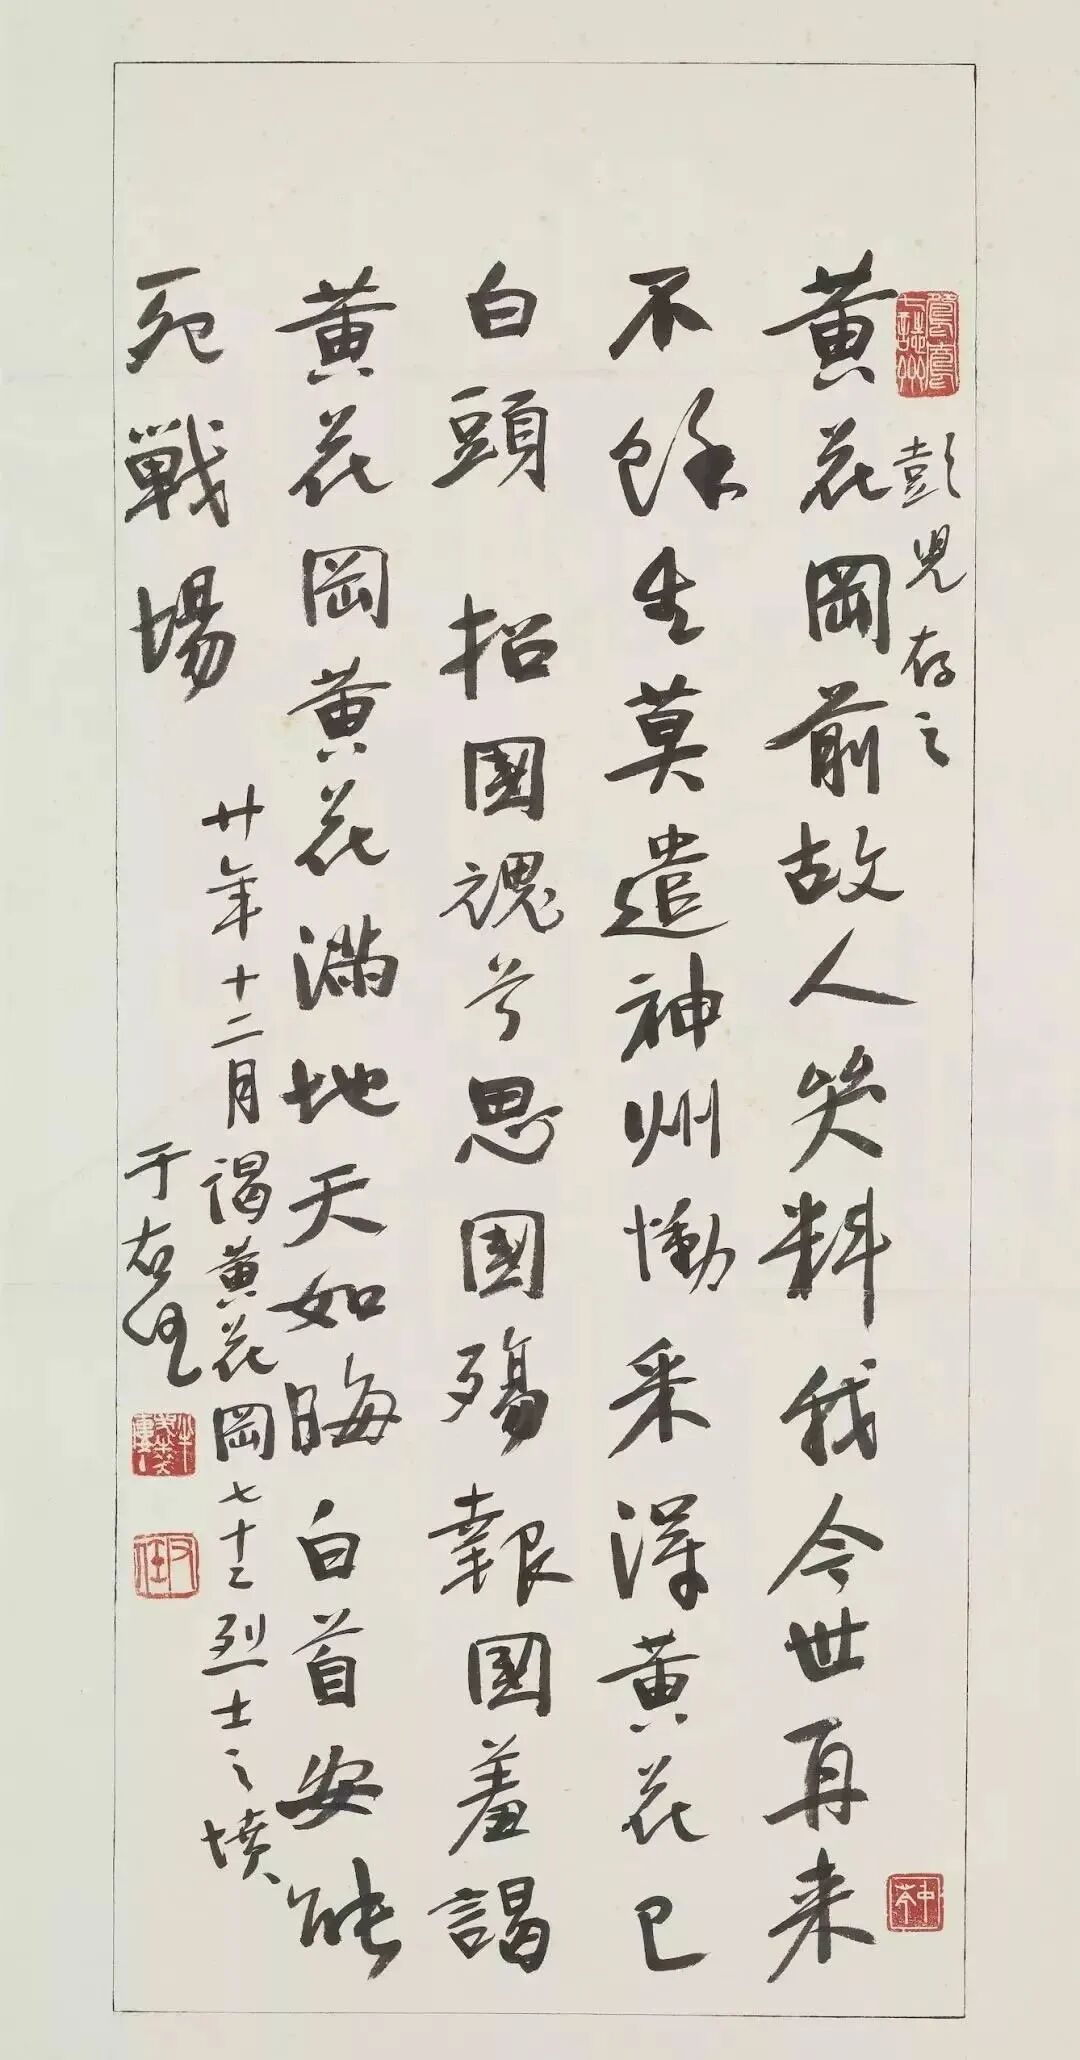 彭兒存之
黄花岡前故人哭料我今世再来
不餘生莫遣神州慟采得黄花已
白頭 招國魂兮思國殤報國羞謁
黄花岡黄花滿地天如晦白首安能
死戰場
廿年十二月謁黄花岡七十二烈士之墳
于右任
右任